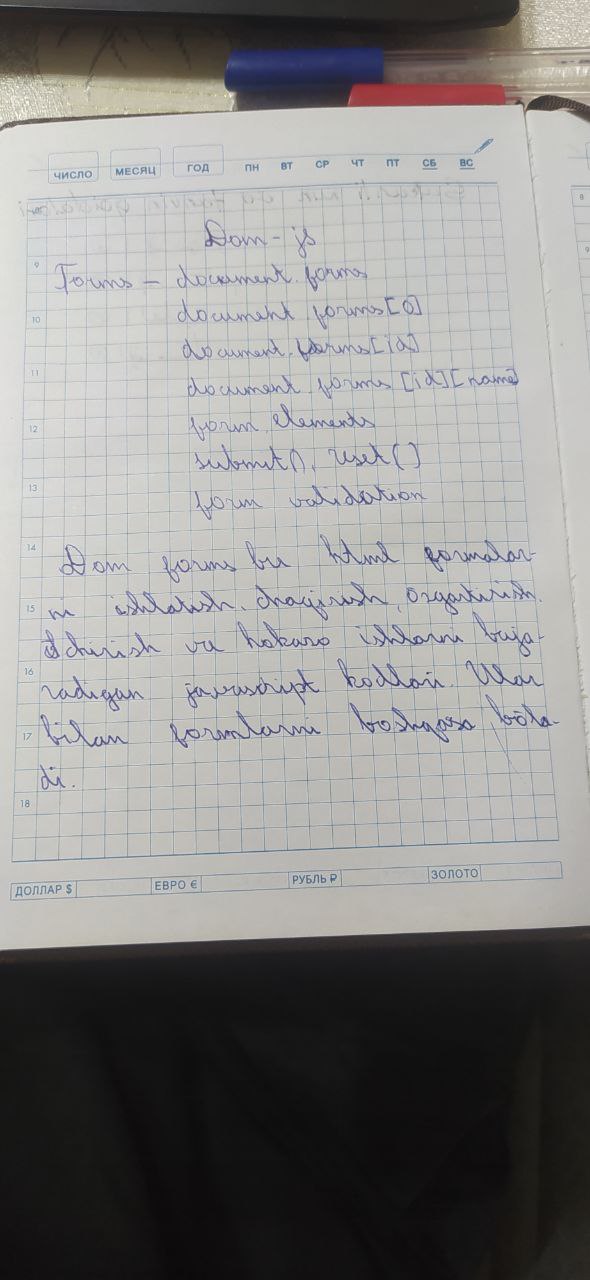 ЧИСЛО МЕСЯЦ ГОД ПН ВТ СР ЧТ ПТ СБ ВС
Dom - js
9 Forms - document.forms
10 document.forms[0]
document.forms[id]
11 document.forms[id][name]
12 form.elements
submit(), reset()
13 form validation
14 Dom forms bu html formalar-
15 ni ishlatish, chaqirish, ozgartirish.
Ochirish va hokazo ishlarni baja-
16 radigan javascript kodlari. Ular
17 bilan formlarni boshqarsa bõla-
di.
18
ДОЛЛАР $ ЕВРО € РУБЛЬ ₽ ЗОЛОТО
8
9